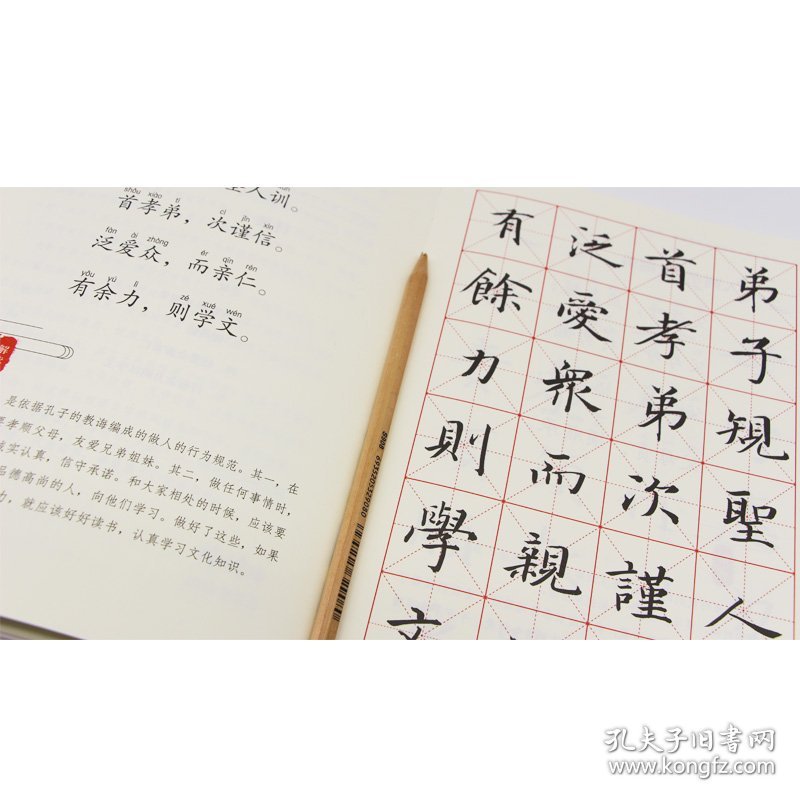 shǒu xiào tì cì jǐn xìn
首孝弟，次谨信。
fàn ài zhòng ér qīn rén
泛爱众，而亲仁。
yǒu yú lì zé xué wén
有余力，则学文。
解
是依据孔子的教诲编成的做人的行为规范。其一，在
孝顺父母，友爱兄弟姐妹。其二，做任何事情时，
实认真，信守承诺。和大家相处的时候，应该要
德高尚的人，向他们学习。做好了这些，如果
力，就应该好好读书，认真学习文化知识。
弟子規聖人
首孝弟次謹
泛愛衆而親
有餘力則學文
孔夫子旧书网
www.kongfz.com